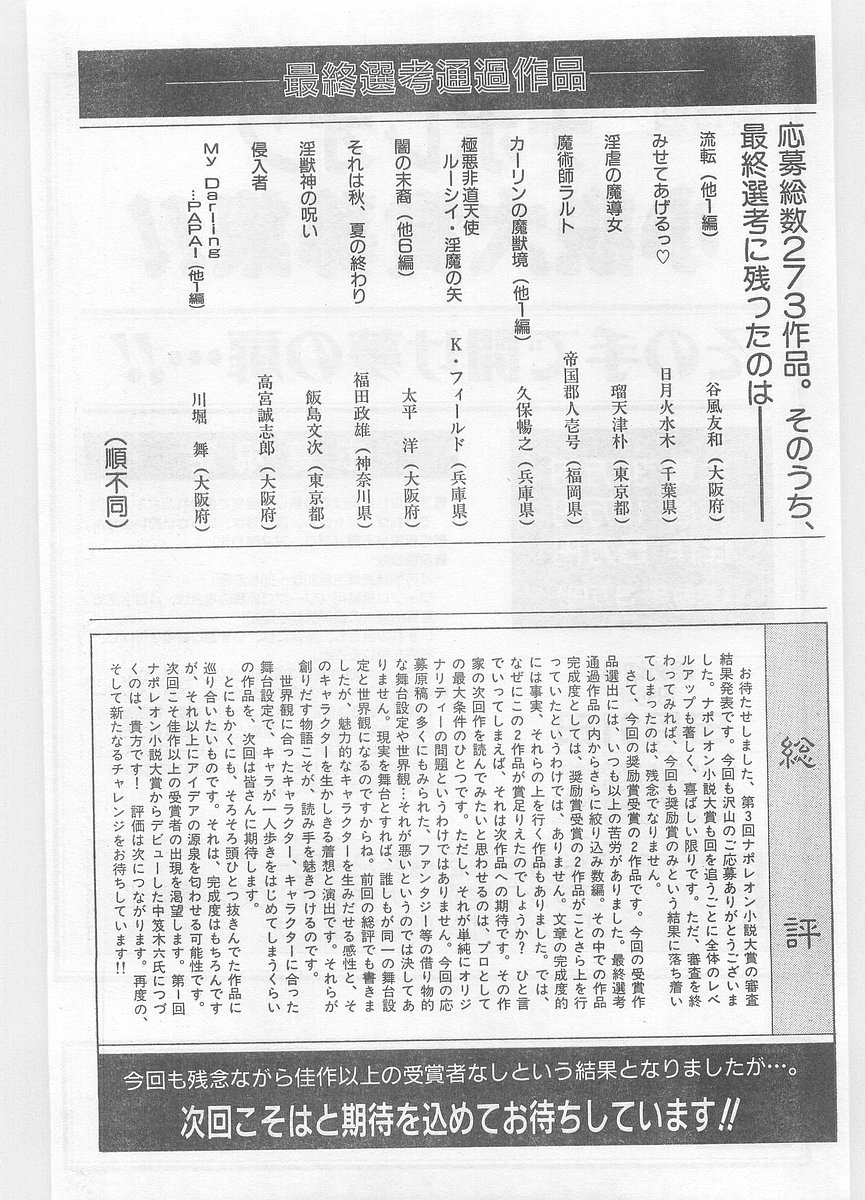 最終選考通過作品
応募総数273作品。そのうち、
最終選考に残ったのは――
流転（他1編） 谷風友和（大阪府）
みせてあげるっ♡ 日月火水木（千葉県）
淫虐の魔導女 瑠天津朴（東京都）
魔術師ラルト 帝国郡人壱号（福岡県）
カーリンの魔獣境（他1編） 久保暢之（兵庫県）
極悪非道天使
ルーシイ・淫魔の矢 K・フィールド（兵庫県）
闇の末裔（他6編） 太平 洋（大阪府）
それは秋、夏の終わり 福田政雄（神奈川県）
淫獣神の呪い 飯島文次（東京都）
侵入者 高宮誠志郎（大阪府）
My Darling
…PAPA!（他1編） 川堀 舞（大阪府）
（順不同）
総評
お待たせしました、第3回ナポレオン小説大賞の審査
結果発表です。今回も沢山のご応募ありがとうございま
した。ナポレオン小説大賞も回を追うごとに全体のレベ
ルアップも著しく、喜ばしい限りです。ただ、審査を終
わってみれば、今回も奨励賞のみという結果に落ち着い
てしまったのは、残念でなりません。
さて、今回の奨励賞受賞の2作品です。今回の受賞作
品選出には、いつも以上の苦労がありました。最終選考
通過作品の内からさらに絞り込み数編。その中での作品
完成度としては、奨励賞受賞の2作品がことさら上を行
っていたというわけでは、ありません。文章の完成度的
には事実、それらの上を行く作品もありました。では、
なぜにこの2作品が賞足りえたのでしょうか? ひと言
でいってしまえば、それは次作品への期待です。その作
家の次回作を読んでみたいと思わせるのは、プロとして
の最大条件のひとつです。ただし、それが単純にオリジ
ナリティーの問題というわけではありません。今回の応
募原稿の多くにもみられた、ファンタジー等の借り物的
な舞台設定や世界観…それが悪いというのでは決してあ
りません。現実を舞台とすれば、誰しもが同一の舞台設
定と世界観になるのですからね。前回の総評でも書きま
したが、魅力的なキャラクターを生みだせる感性と、そ
のキャラクターを生かしきる着想と演出です。それらが
創りだす物語こそが、読み手を魅きつけるのです。
世界観に合ったキャラクター、キャラクターに合った
舞台設定で、キャラが一人歩きをはじめてしまうくらい
の作品を、次回は皆さんに期待します。
とにもかくにも、そろそろ頭ひとつ抜きんでた作品に
巡り合いたいものです。それは、完成度はもちろんです
が、それ以上にアイデアの源泉を匂わせる可能性です。
次回こそ佳作以上の受賞者の出現を渇望します。第1回
ナポレオン小説大賞からデビューした中笈木六氏につづ
くのは、貴方です! 評価は次につながります。再度の、
そして新たなるチャレンジをお待ちしています!!
今回も残念ながら佳作以上の受賞者なしという結果となりましたが…。
次回こそはと期待を込めてお待ちしています!!